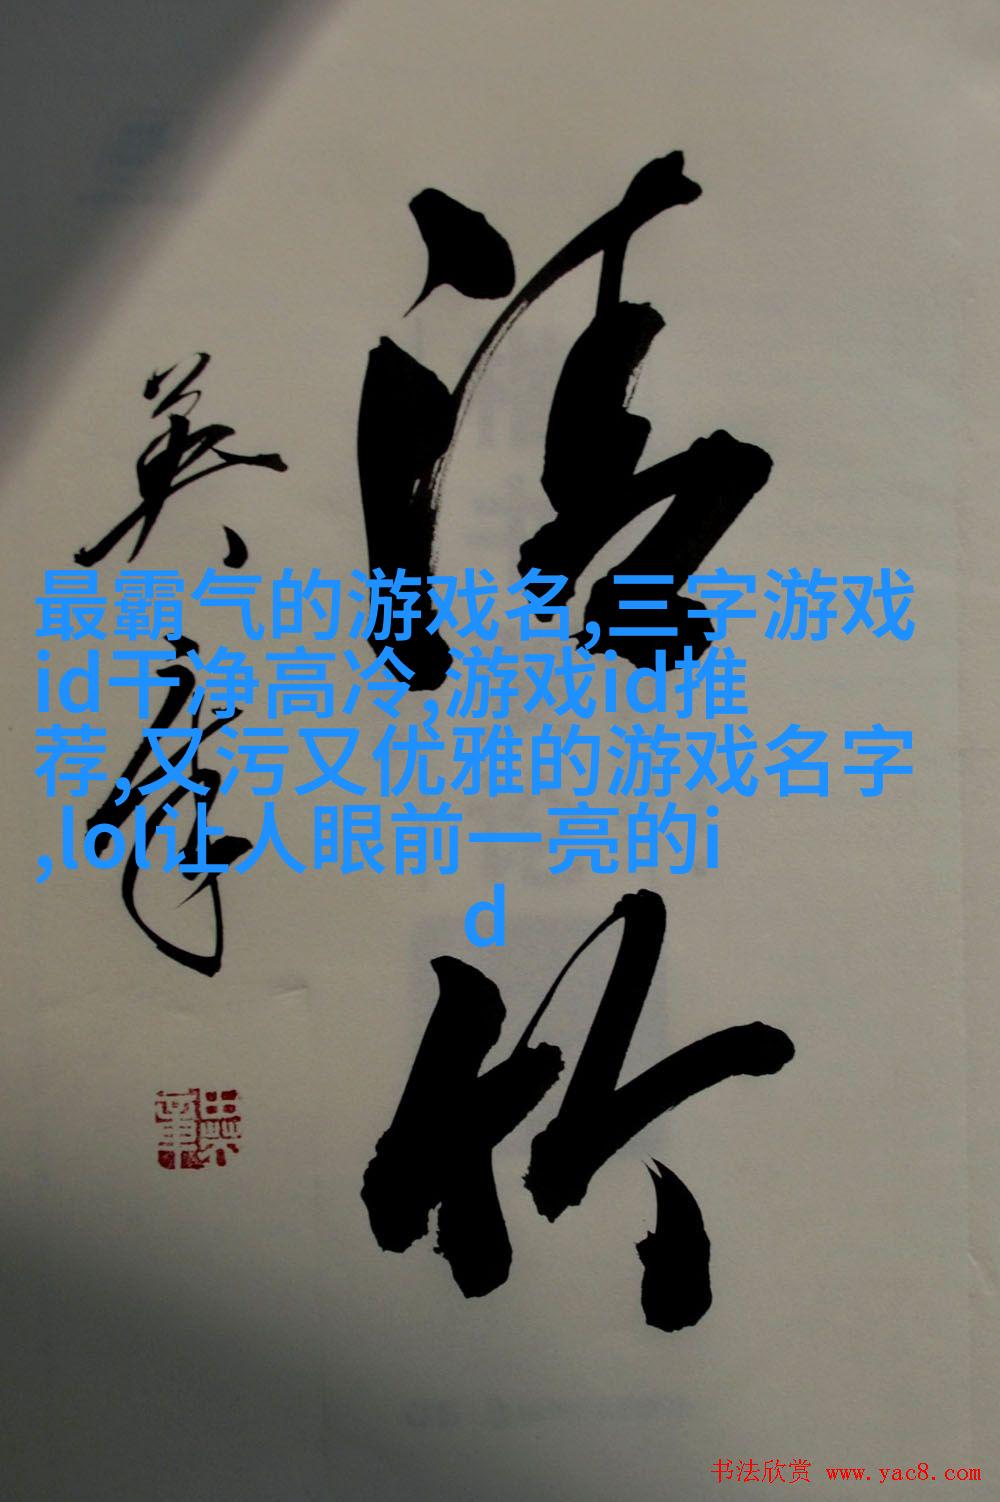 竹
英
最霸气的游戏名,三字游戏
id干净高冷,游戏id推
荐,又污又优雅的游戏名字
,lol让人眼前一亮的i
d
书法欣赏 www.yac8.com